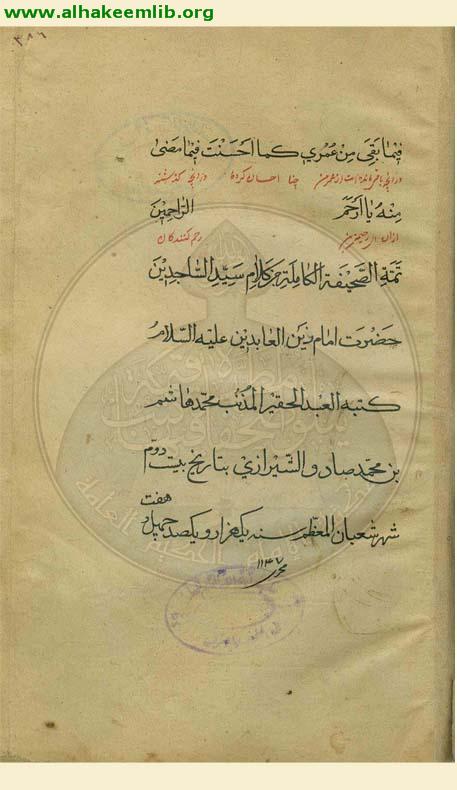 www.alhakeemlib.org
٣٨٦
فِيمَا بَقِيَ مِنْ عُمُرِي كَمَا أَحْسَنْتَ فِيمَا مَضَى
در آنچه باقی مانده است از عمر من چنانچه احسان کرده در آنچه گذشته
مِنْهُ يَا أَرْحَمَ الرَّاحِمِينَ
ازان ای رحیم‌ترین رحم کنندگان
تمة الصحيفة الكاملة من كلام سيد الساجدين
حضرت امام زين العابدين عليه السلام
كتبه العبد الحقير المذنب محمد هاشم
بن محمد صادق الشيرازي بتاريخ بيست دوم
شهر شعبان المعظم سنه يكهزار و يكصد چهل و هفت
١١٤٧